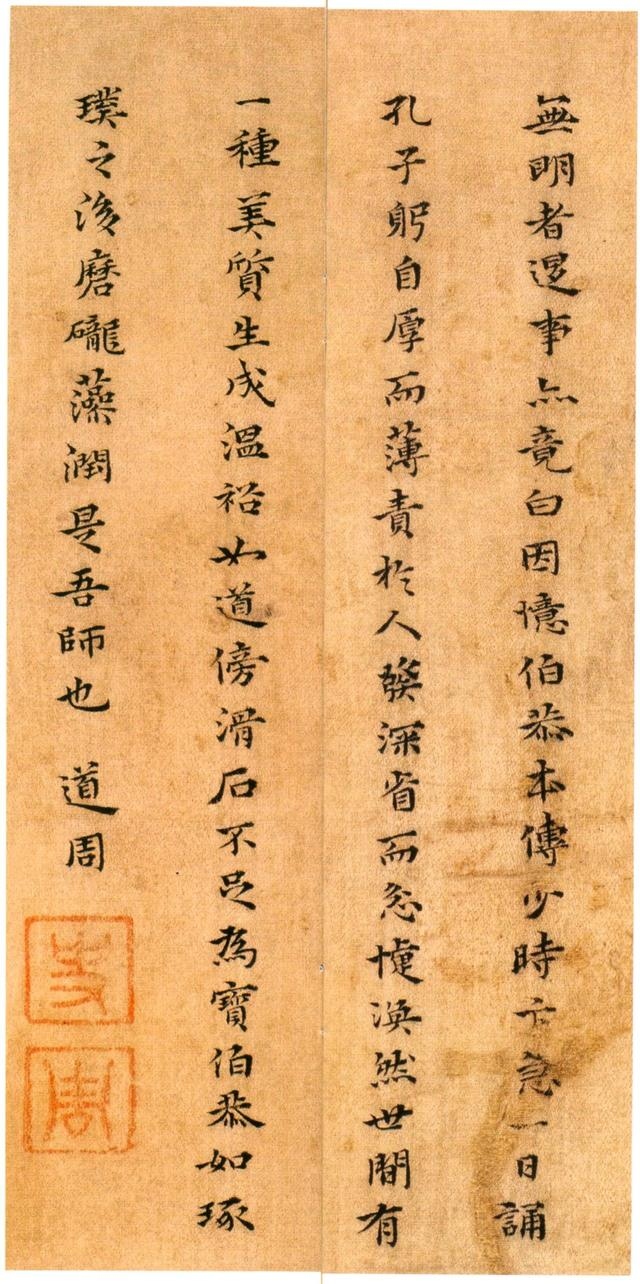 無明者退事亦竟白因憶伯恭本傳少時卞急一日誦
孔子躬自厚而薄責於人發深省而忿懥渙然世間有
一種美質生成溫裕如道傍滑石不足為寶伯恭如琢
璞之後磨礲藻潤是吾師也 道周
周